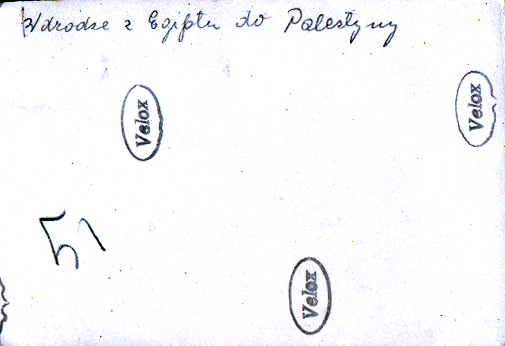 W drodze z Egiptu do Palestyny
Velox
Velox
51
Velox